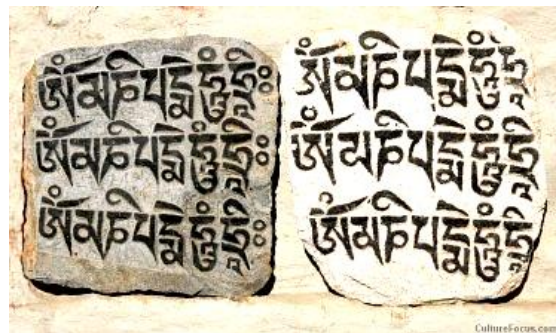 ཨོཾམཎིཔདྨེཧཱུྃཧྲཱིཿ
ཨོཾམཎིཔདྨེཧཱུྃཧྲཱིཿ
ཨོཾམཎིཔདྨེཧཱུྃཧྲཱིཿ
ཨོཾམཎིཔདྨེཧཱུྃཧྲཱི
ཨོཾམཎིཔདྨེཧཱུྃཧྲཱི
ཨོཾམཎིཔདྨེཧཱུྃཧྲཱི
CultureFocus.com